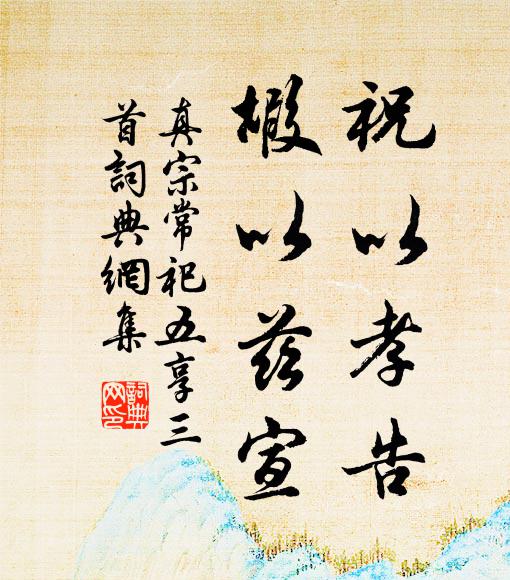 祝以孝告
嘏以慈宣
真宗常祀五享三
首詞典網集
詞典
网印